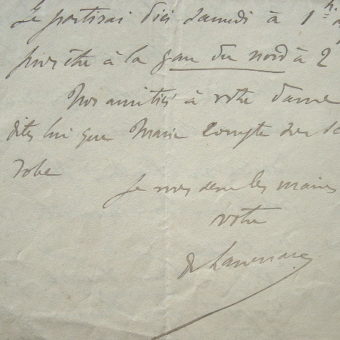 Je partirai d'ici Samedi à 1h
pour être à la gare du nord à 2
Mes amitiés à votre dame
dites lui que Marie compte sur sa
robe
Je vous serre les mains
votre
de Lanessan